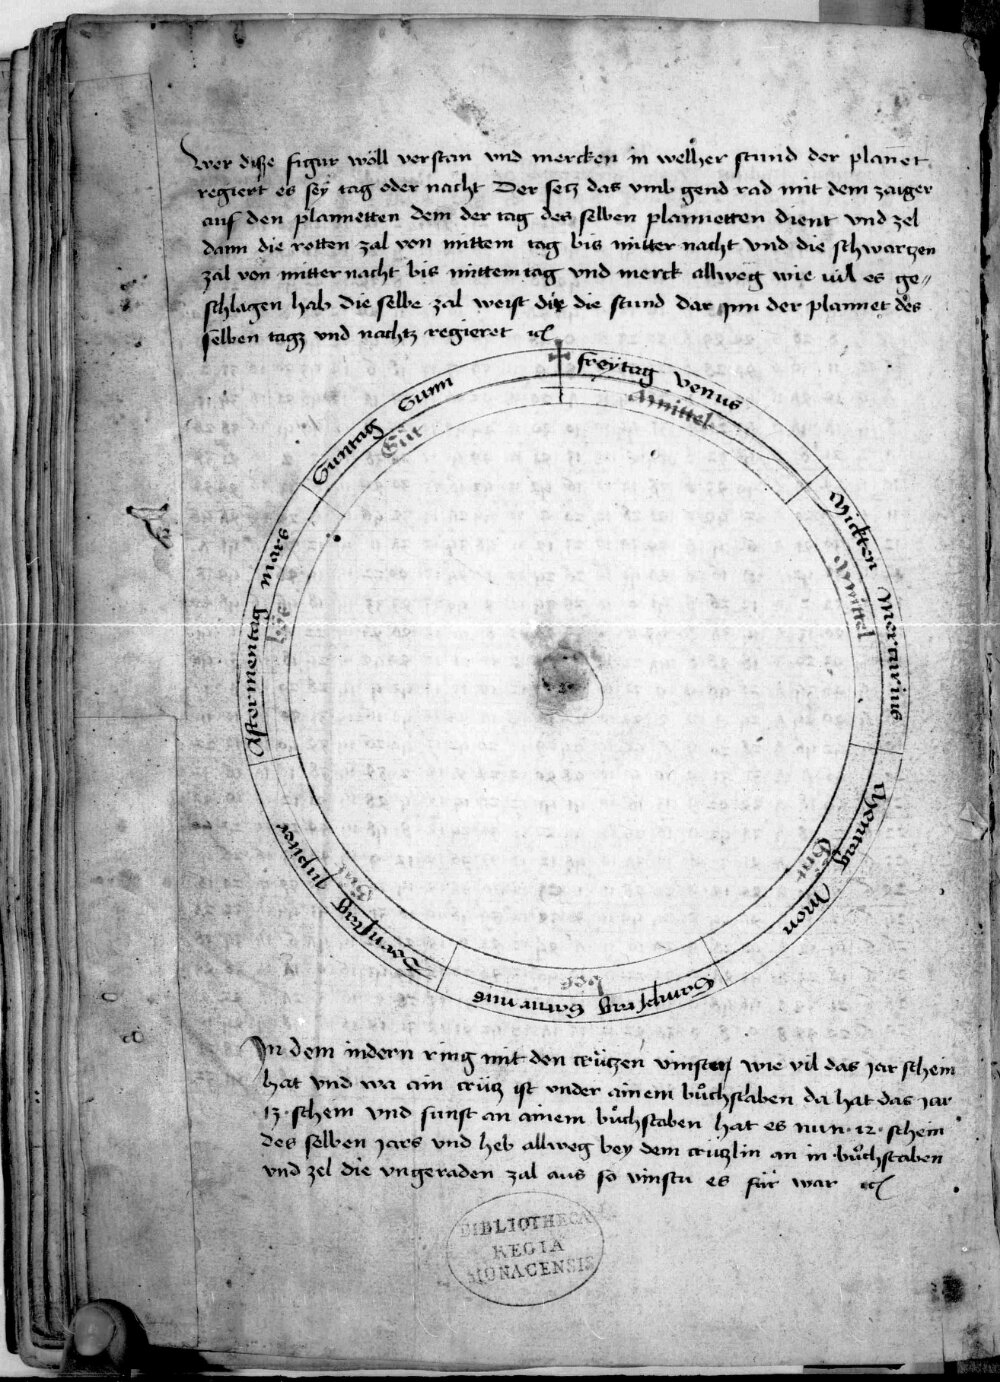 Wer diße figur wöll verstan vnd mercken in welher stund der planet
regiert es seÿ tag oder nacht Der secz das vmb gend rad mit dem zaiger
auf den plannetten dem der tag des selben plannetten dient vnd zel
dann die rotten zal von mittem tag bis mitter nacht vnd die schwarczen
zal von mitter nacht bis mittem tag vnd merck allweg wie uil es ge„
schlagen hab die selbe zal weist dir die stund dar jnn der plannet des
selben tagz vnd nachtz regieret
freÿtag venus
Amittel
Mickten Mercurius
Amittel
Mentag Mon
Gut
Sampstag Saturnus
bös
Dornstag Jupiter
Gut
Aftermentag mars
bös
Suntag Sunn
Gut
In dem indern ring mit den crützen vinstu wie vil das jar schein
hat vnd wa ain crütz ist vnder ainem bůchstaben da hat das jar
13 · schein vnd sunst an ainem bůchstaben hat es nun · 12 · schein
des selben jars vnd heb allweg bey dem crützlin an in bůchstaben
vnd zel die vngeraden zal aus so vinstu es für war
BIBLIOTHECA
REGIA
MONACENSIS